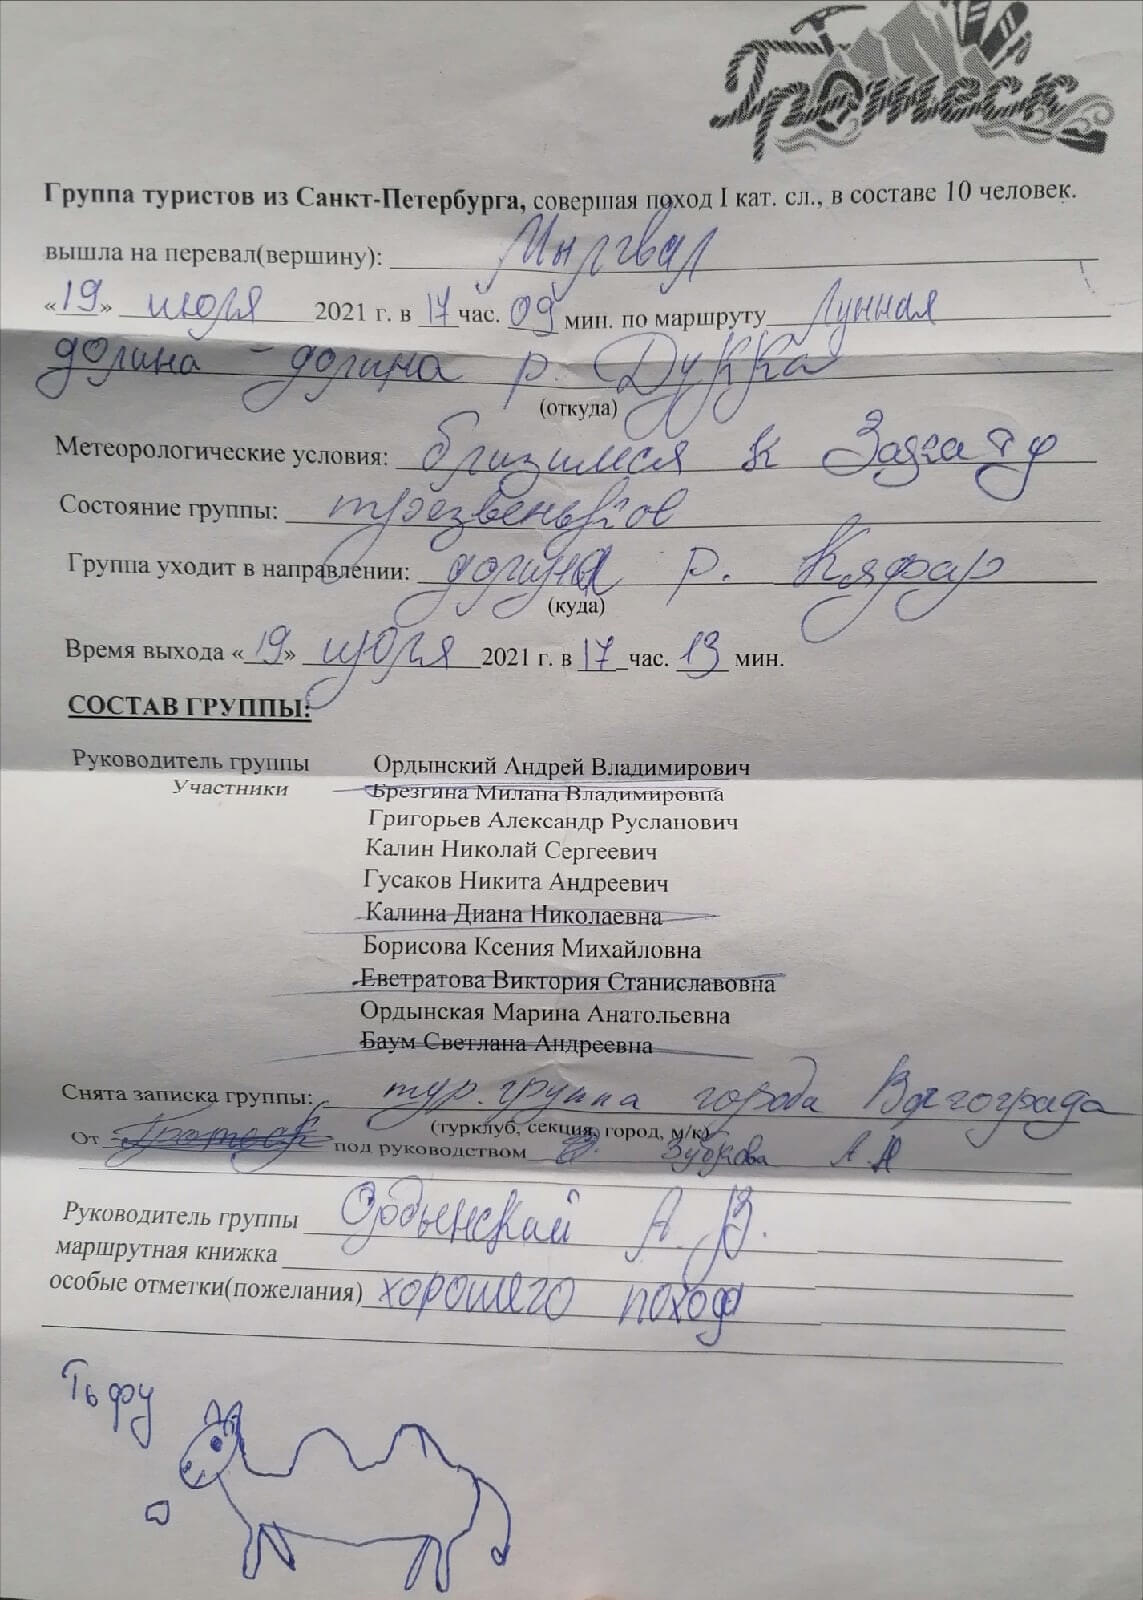 Громеск
Группа туристов из Санкт-Петербурга, совершая поход I кат. сл., в составе 10 человек.
вышла на перевал(вершину): Мылгвал
«19» июля 2021 г. в 17 час. 09 мин. по маршруту Лунная
долина - долина р. Дукка
(откуда)
Метеорологические условия: близимся к Закату
Состояние группы:
Группа уходит в направлении: долина р. Кяфар
(куда)
Время выхода «19» июля 2021 г. в 17 час. 13 мин.
СОСТАВ ГРУППЫ:
Руководитель группы Ордынский Андрей Владимирович
Участники Брезгина Милана Владимировна
Григорьев Александр Русланович
Калин Николай Сергеевич
Гусаков Никита Андреевич
Калина Диана Николаевна
Борисова Ксения Михайловна
Евстратова Виктория Станиславовна
Ордынская Марина Анатольевна
Баум Светлана Андреевна
Снята записка группы: тур. группа города Волгограда
(турклуб, секция, город, м/к)
От под руководством Зуброва А.А
Руководитель группы Ордынский А. В.
маршрутная книжка
особые отметки(пожелания) хорошего похода
Тьфу